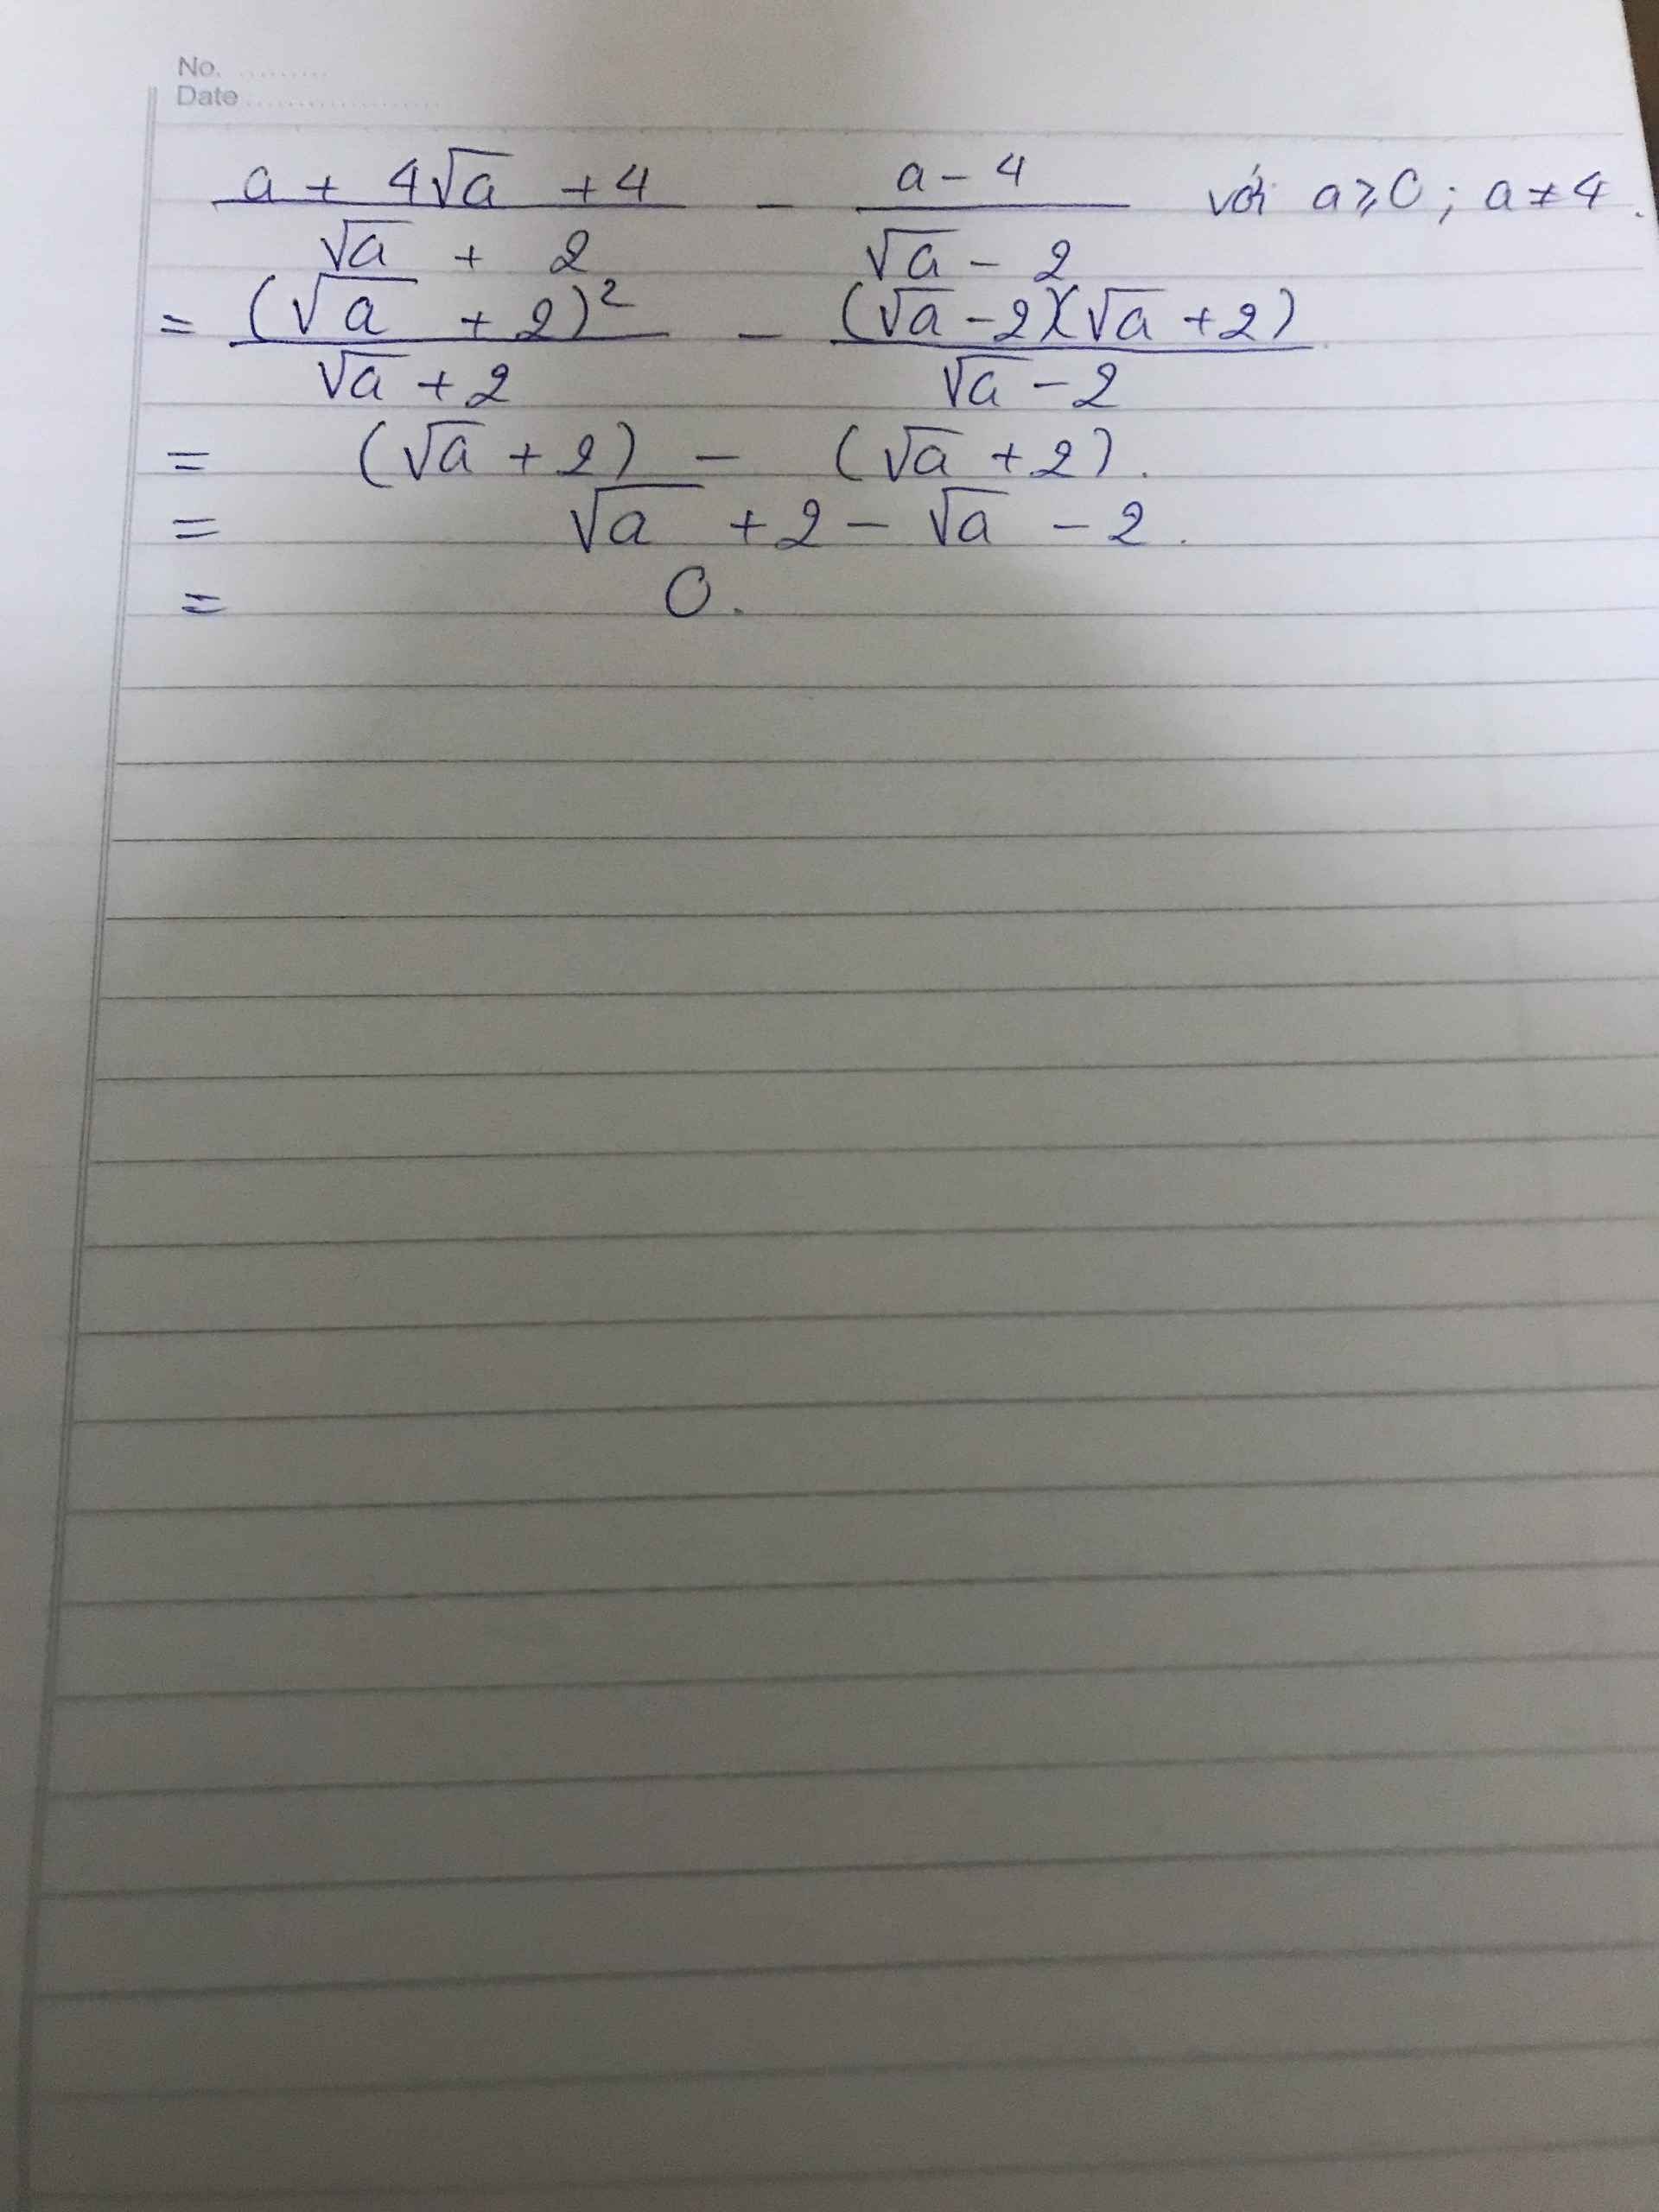 No. ..........
Date ......................
a + 4√a + 4 / √a + 2 - a - 4 / √a - 2 với a ≥ 0 ; a ≠ 4.
= (√a + 2)² / √a + 2 - (√a - 2)(√a + 2) / √a - 2
= (√a + 2) - (√a + 2).
= √a + 2 - √a - 2.
= 0.